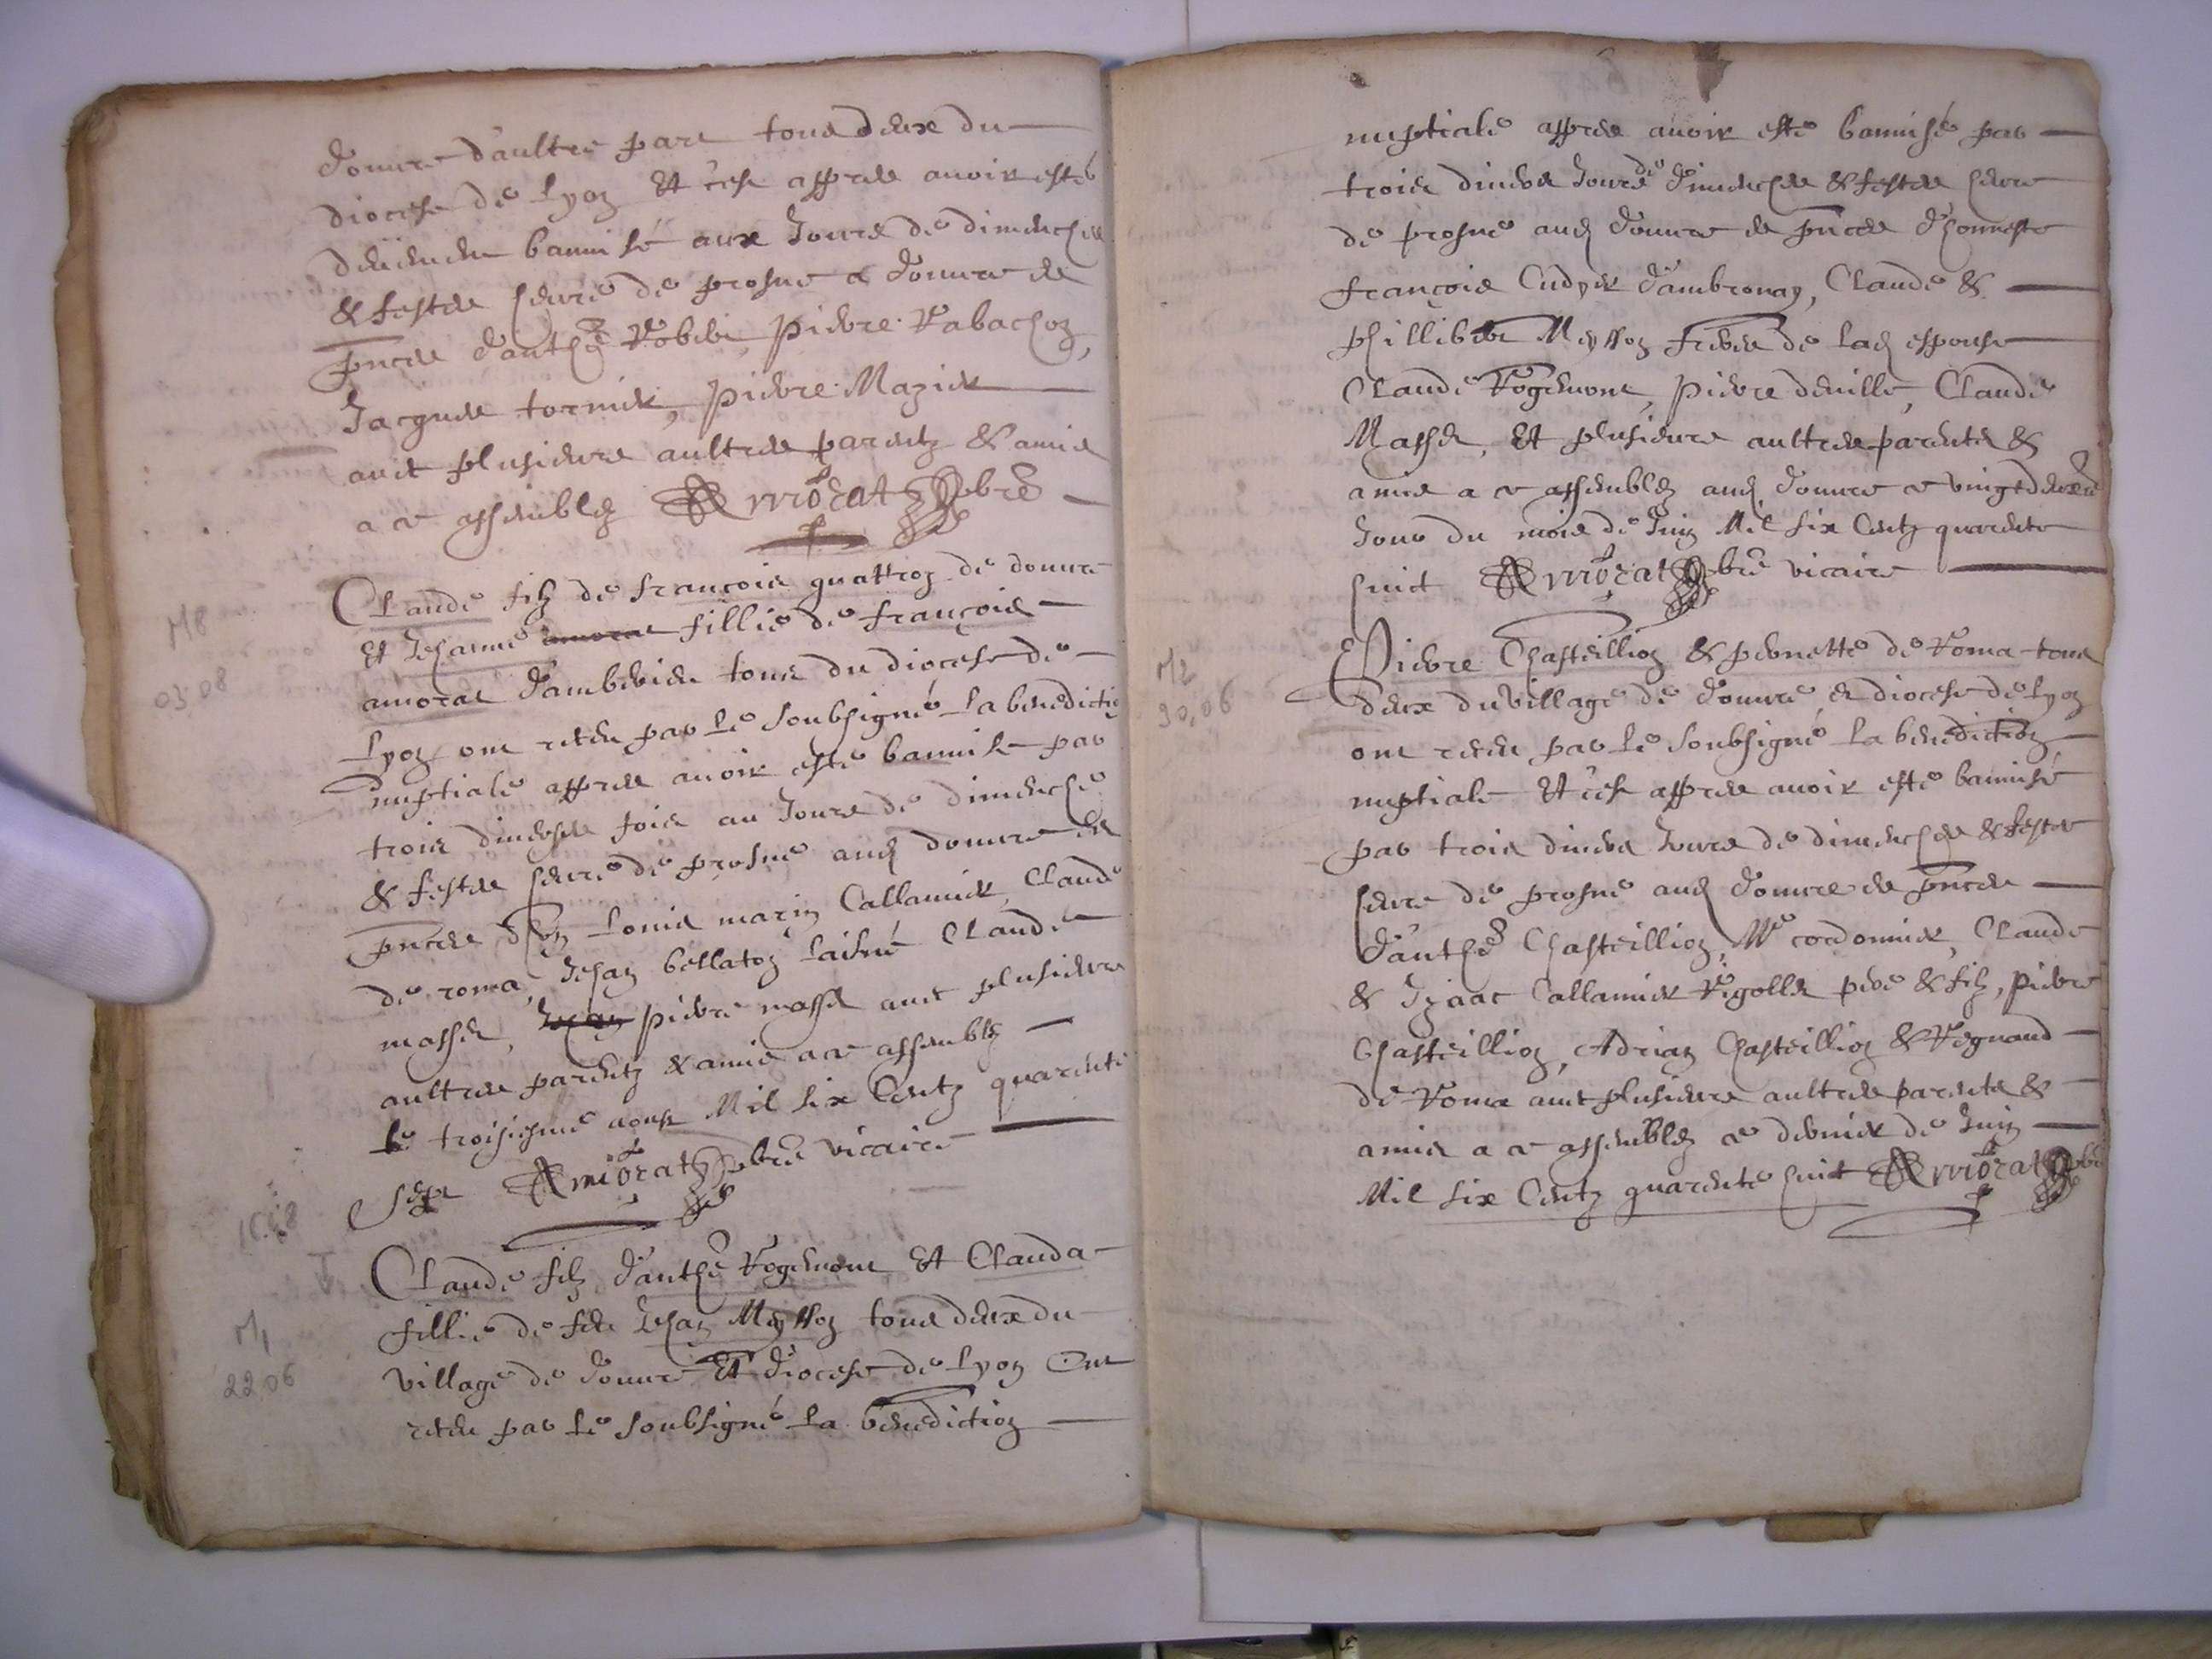 douvre d'aultre part tous deux du
diocese de Lyon Et c'est appres avoir estés
deuement bannisé aux Jours de dimenches
& festes heure de prosne a douvre es
pnces d'anthe Robbi, pierre Rabachon,
Jacques tornier, pierre Mazier
avec plusieurs aultres parentz & amis
a ce assemblez Amorat pbre
M8
03,08
Claude filz de françois quattron de douvre
Et Jehanne amorat fillie de françois
amorat d'ambérieu tous du diocese de
Lyon ont receu par le soubsigné la benedictio
nuptiale appres avoir esté bannise par
trois diverses fois au Jours de dimenche
& festes heure de prosne aud douvre es
pnces d'hon Louis marin Callamier, Claude
de roma, Jehan bellaton laisné Claude
masse, Jehan pierre masse avec plusieurs
aultres parentz & amis a ce assemblez
le troisiesme aoust Mil six Centz quarente
sept Amiorat pbre vicaire
1648
M1
22,06
Claude filz d'anthe Rogemont Et Clauda
fillie de feu Jehan Meysson tous deux du
village de douvre Et diocese de Lyon Ont
receu par le soubsigné la benediction
nuptiale appres avoir esté bannisé par
trois divers Jours de dimenches & festes heure
de prosne aud douvre es pnces d'honneste
françois Cudyer d'ambronay, Claude &
phillibert Meysson freres de lad espouse
Claude Rogemont, pierre deville, Claude
Masse, Et plusieurs aultres parents &
amis a ce assemblez aud douvre ce vingtdeuxe
Jour du mois de Juin Mil six Centz quarente
huict Amorat pbre vicaire
M2
30,06
Pierre Chasteillion & pernette de Roma tous
deux du village de douvre es diocese de Lyon
ont receu par le soubsigné la benediction
nuptiale Et c'est appres avoir esté bannisé
par trois divers Jours de dimenches & festes
heure de prosne aud douvre es pnces
d'anthe Chasteillion, Me cordonnier, Claude
& Izaac Callamier Rigolle pere & filz, pierre
Chasteillion, Adrian Chasteillion & Regnaud
de Roma avec plusieurs aultres parents &
amis a ce assemblez ce dernier de Juin
Mil six Centz quarente huict Amorat pbre